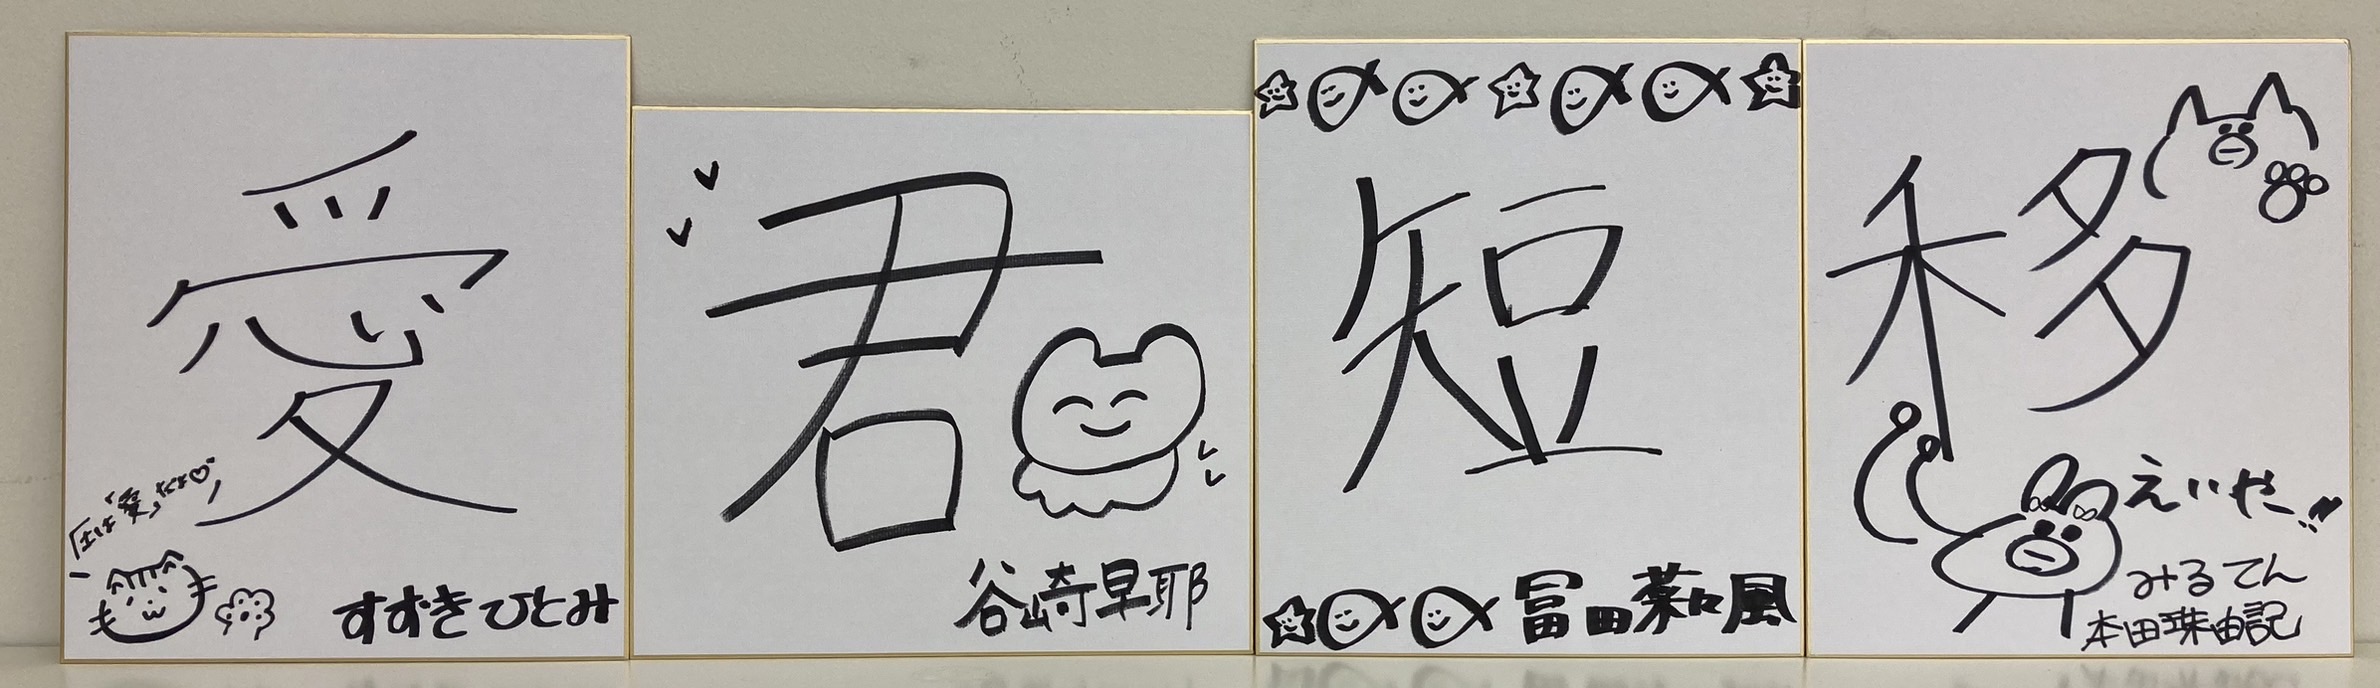 愛
「土は「愛」だよ♡
すずきひとみ
君
谷崎早耶
短
冨田菜々風
移
えいやー!!
みるてん
本田珠由記